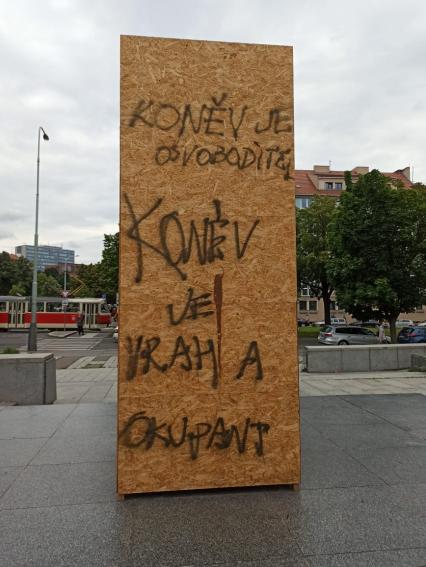 KONĚV JE
OSVOBODITEL
KONĚV
JE
VRAH A
OKUPANT